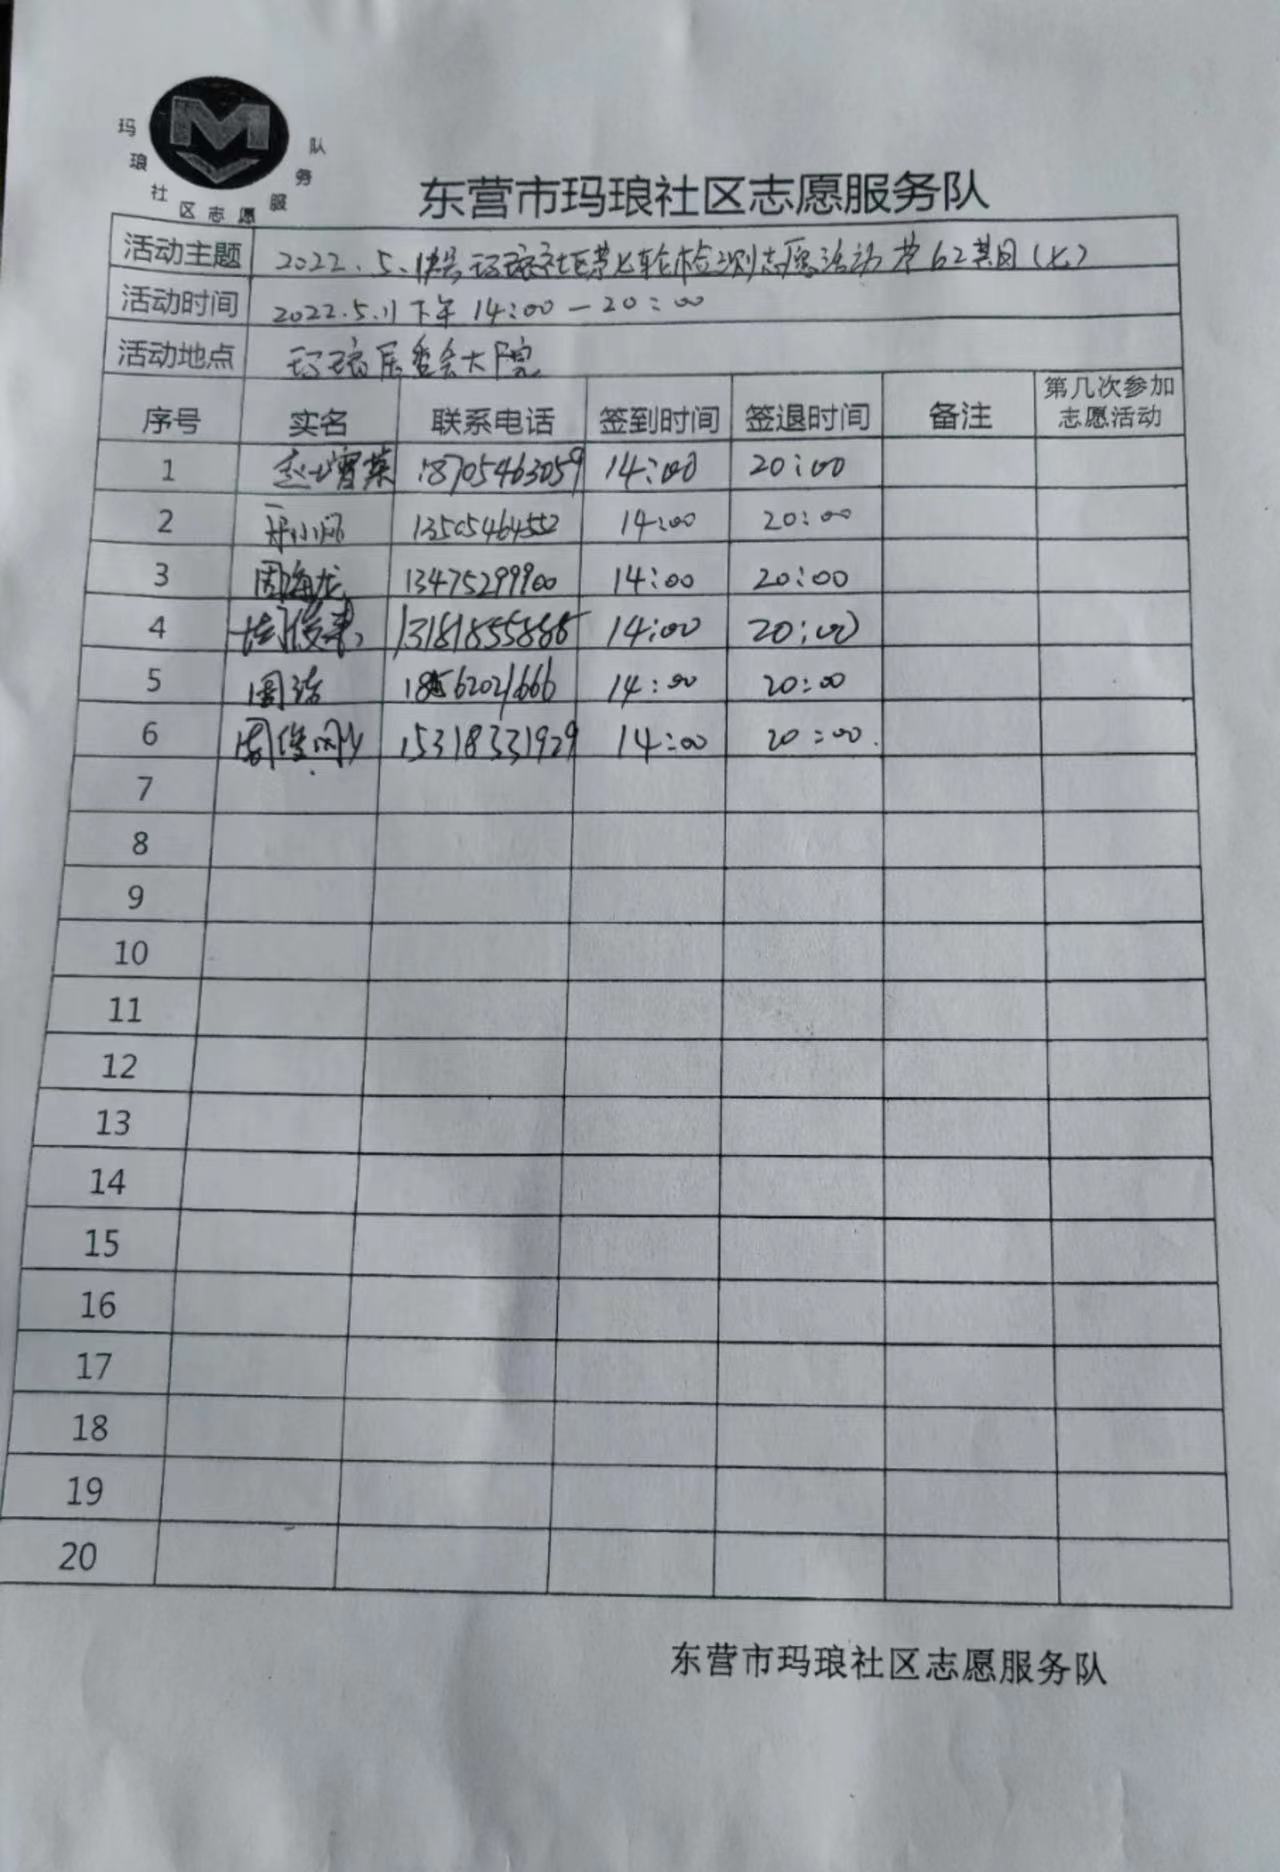 M
玛琅社区志愿服务队
东营市玛琅社区志愿服务队
活动主题 2022.5.11号玛琅社区第七轮检测志愿活动第62期(七)
活动时间 2022.5.11下午14:00-20:00
活动地点 玛琅居委会大院
序号 实名 联系电话 签到时间 签退时间 备注 第几次参加志愿活动
1 18705463059 14:00 20:00
2 13505464552 14:00 20:00
3 周海龙 13475299900 14:00 20:00
4 13181855888 14:00 20:00
5 周 18562021666 14:00 20:00
6 周俊 15318331929 14:00 20:00
7
8
9
10
11
12
13
14
15
16
17
18
19
20
东营市玛琅社区志愿服务队